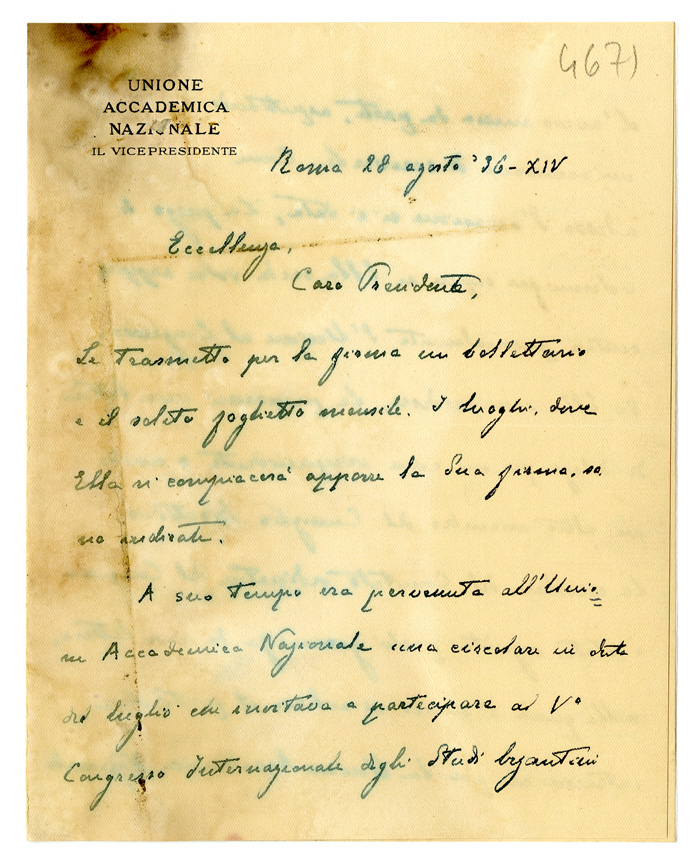 467)
UNIONE
ACCADEMICA
NAZIONALE
IL VICEPRESIDENTE
Roma 28 agosto '36 - XIV
Eccellenza,
Caro Presidente,
Le trasmetto per la firma un bollettario
e il solito foglietto mensile. I luoghi, dove
Ella si compiacerà apporre la Sua firma, so
no indicati.
A suo tempo era pervenuta all'Unio=
ne Accademica Nazionale una circolare in data
del luglio che invitava a partecipare al V°
Congresso Internazionale degli Studi byzantini